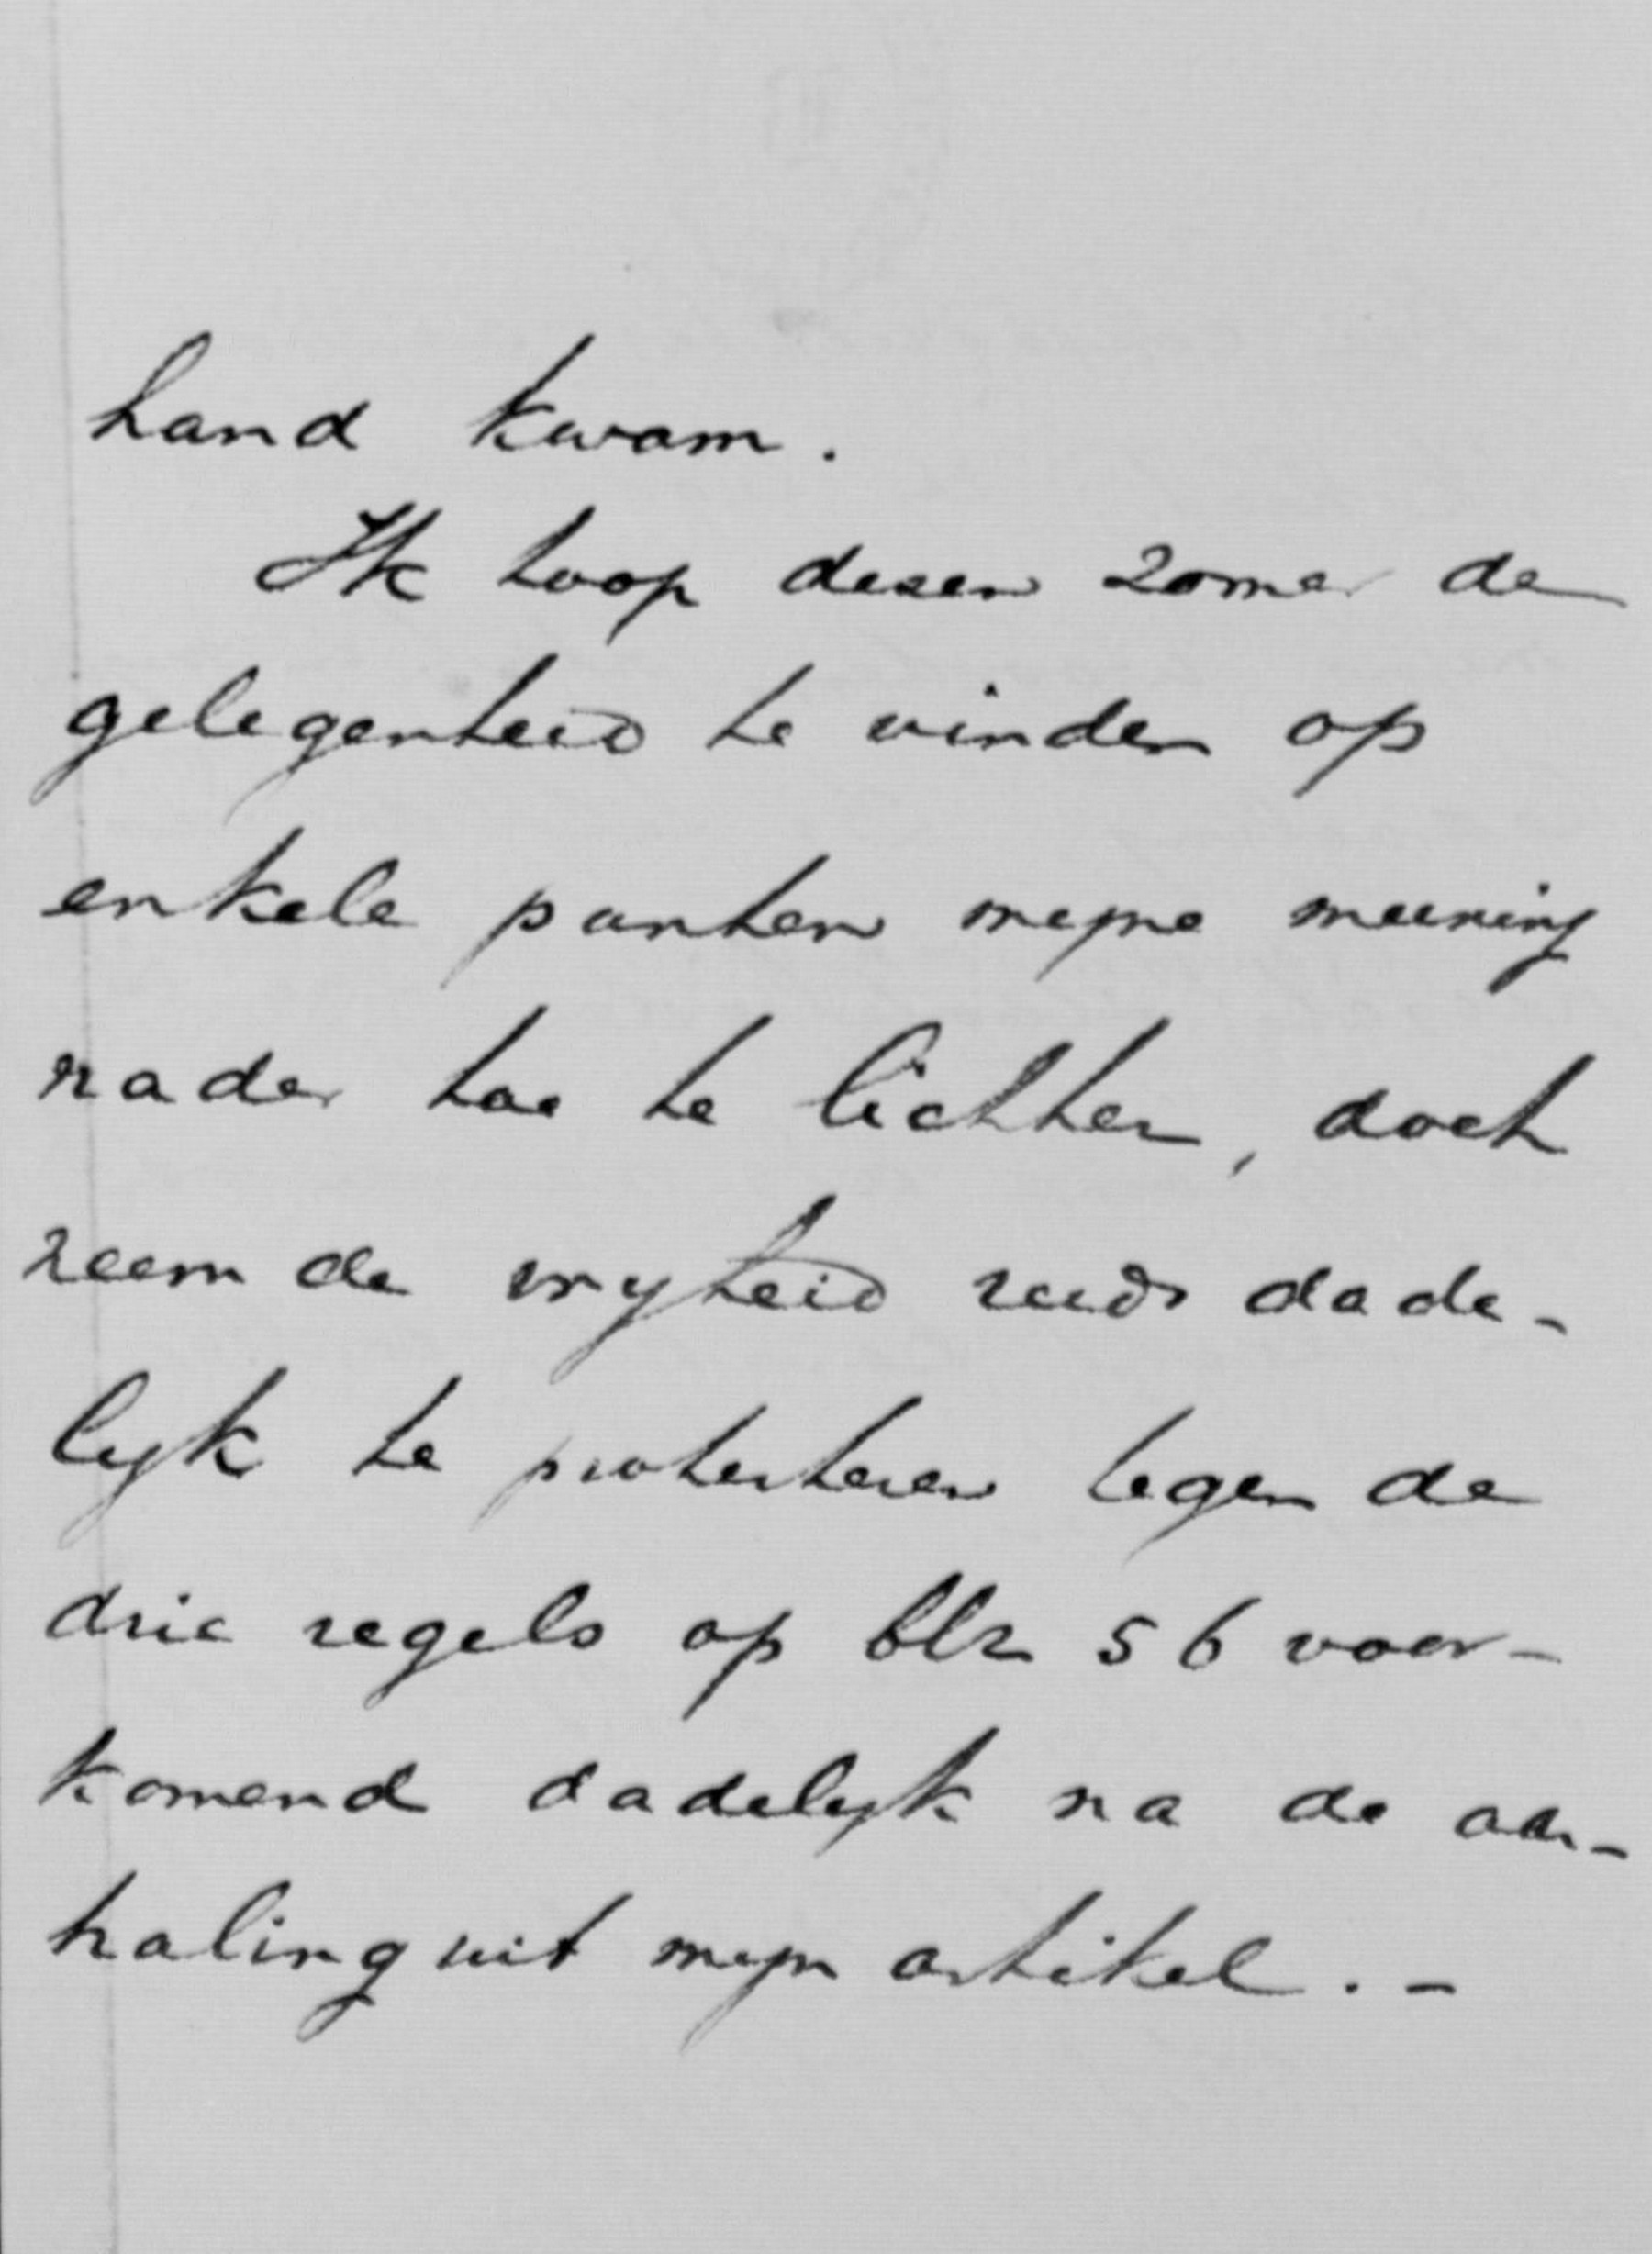 hand kwam.
Ik hoop dezen zomer de
gelegenheid te vinden op
enkele punten mijne meening
nader toe te lichten, doch
neem de vrijheid reeds dade-
lijk te protesteren tegen de
drie regels op blz 56 voor-
komend dadelijk na de aan-
haling uit mijn artikel. -